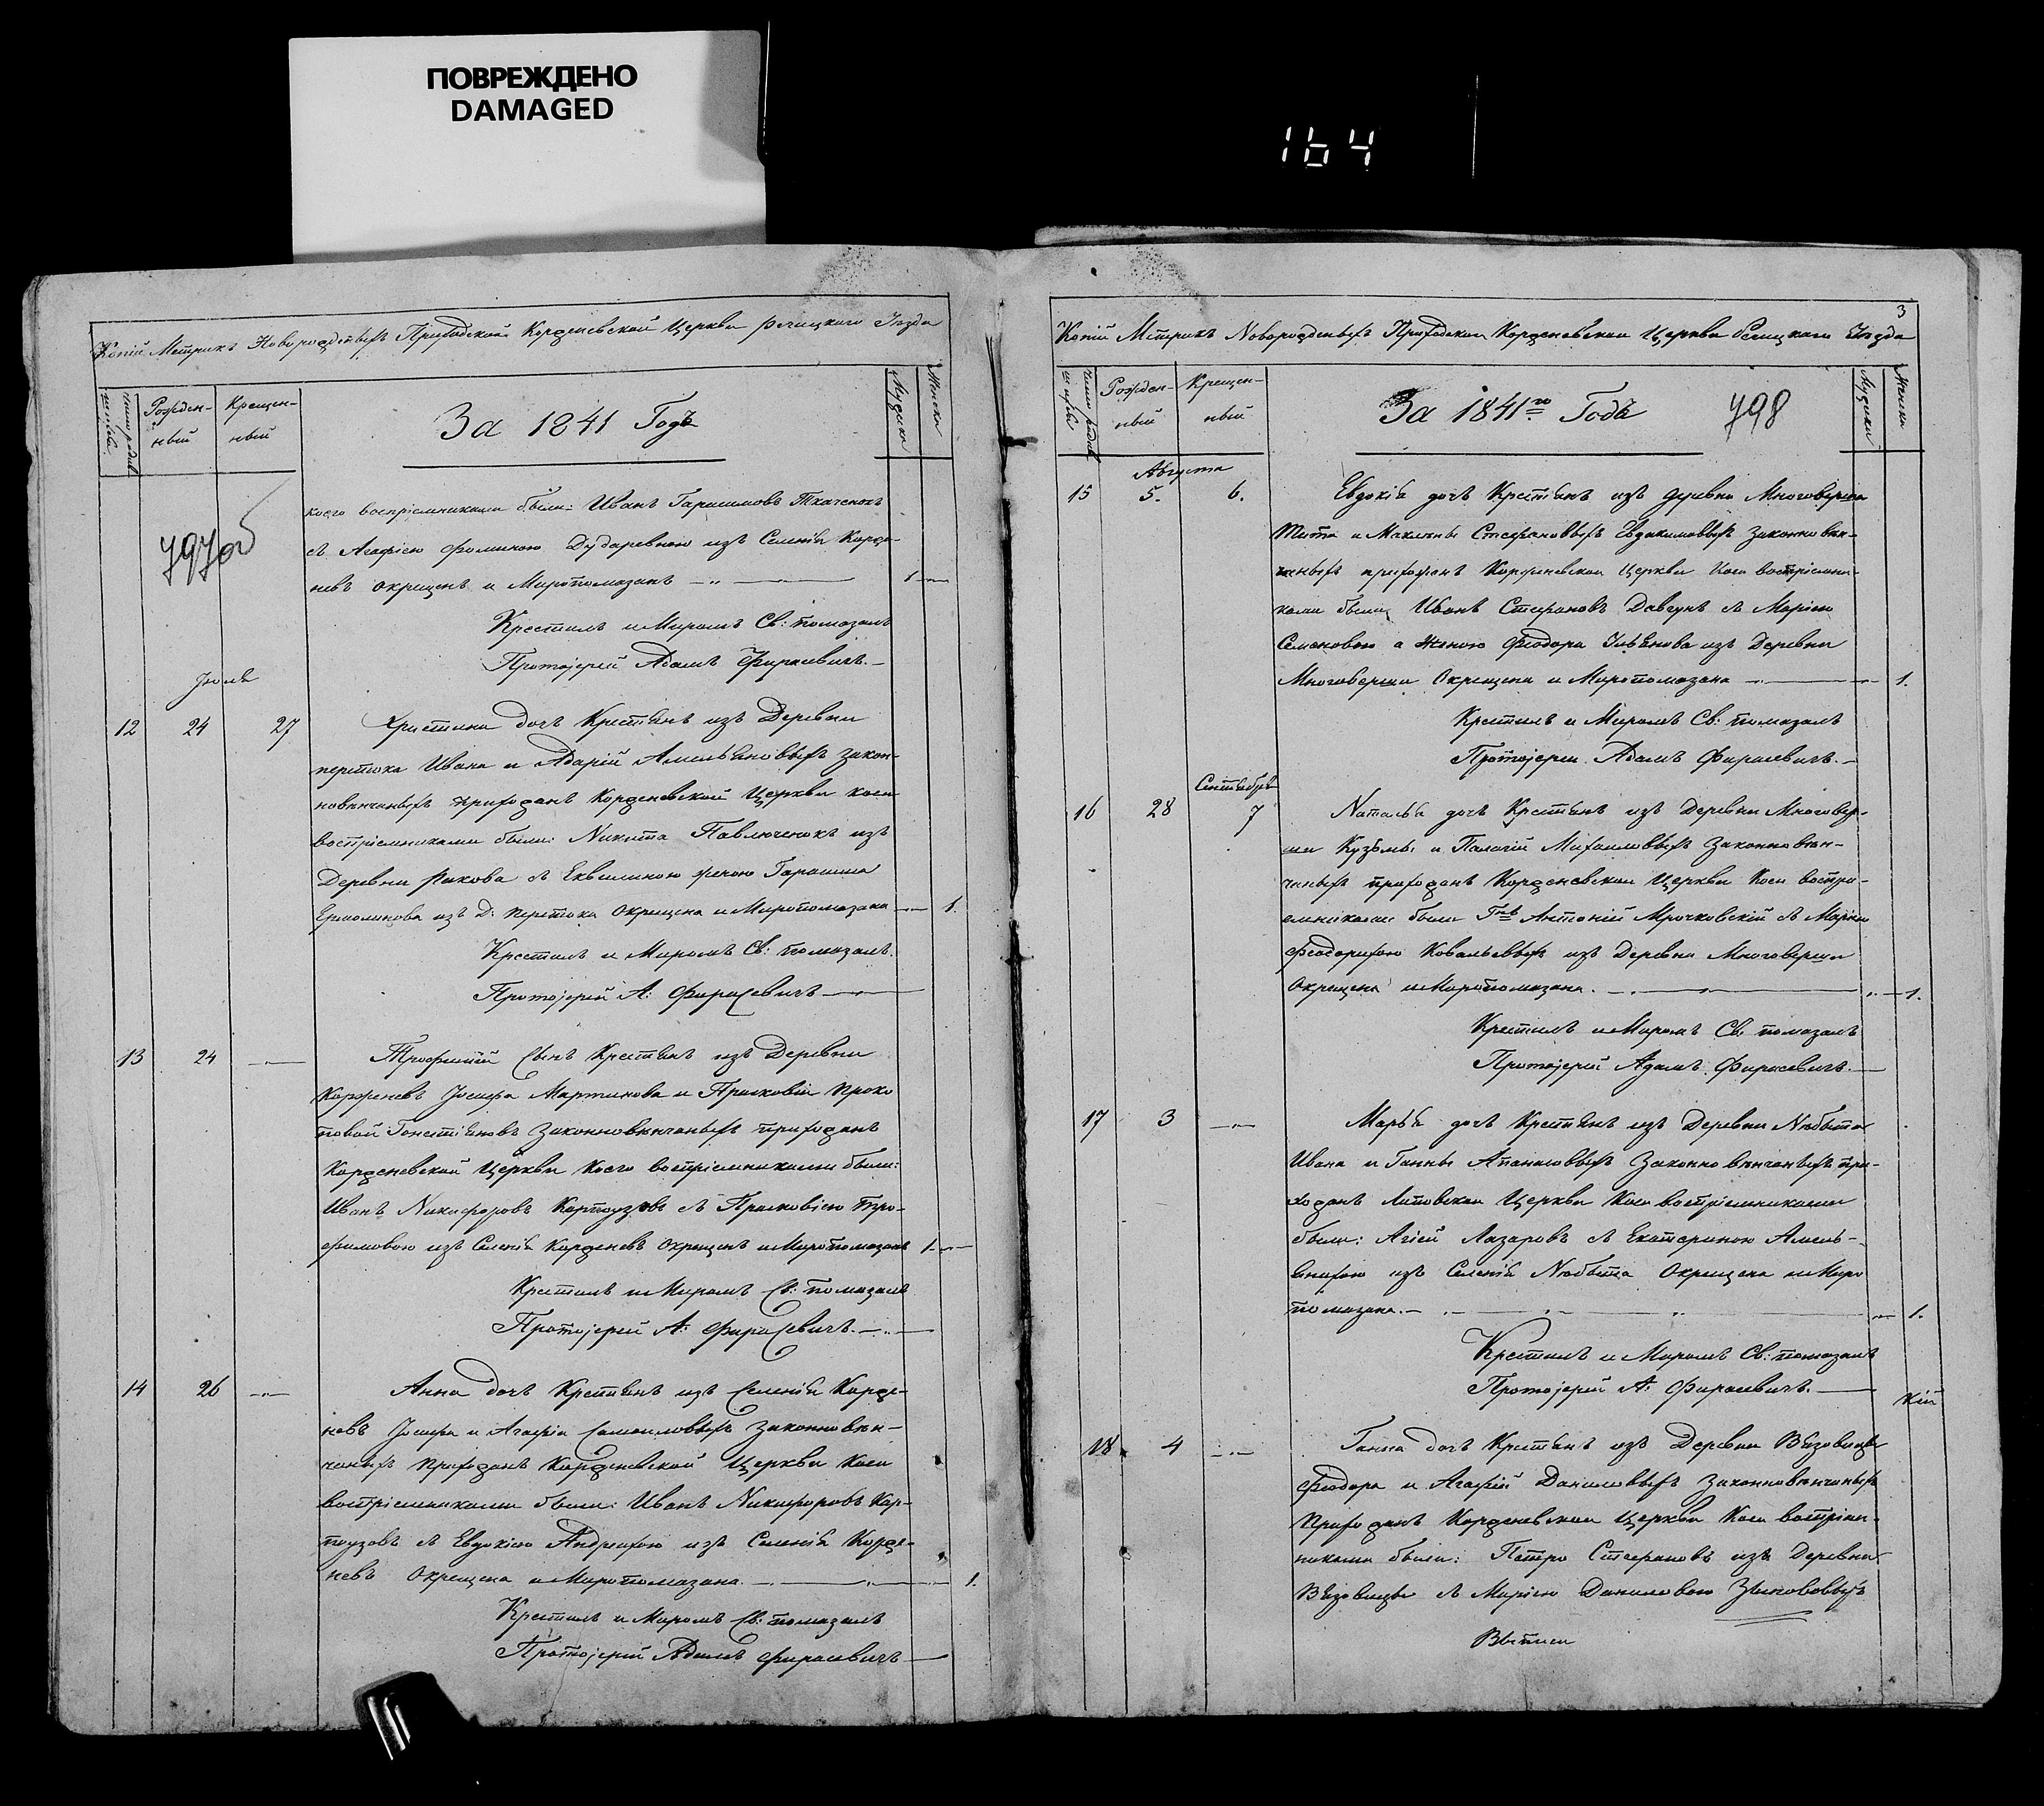 ПОВРЕЖДЕНО
DAMAGED
164
Копій Метрикъ Новорожденыхъ Приходской Корженевской Церкви Речицкаго Уезда
Рожден-
ный
Крещен-
ный
За 1841 Годъ
Мужска
Женска
797об
коего воспріемниками были: Иванъ Гарашимовъ Ткаченокъ
съ Агафіею Фоминою Дударевною изъ Селенія Корже-
невъ окрещенъ и Миропомазанъ 1
Крестилъ и Миромъ Св: помазалъ
Протоіерей Адамъ Фирасевичъ.
Іюля
12 24 27 Христина дочъ Крестьянъ изъ Деревни
перетока Ивана и Адаріи Амельяновыхъ закон-
новенчаныхъ прихожанъ Корженевской Церкви коеи
воспріемниками были: Никита Павлюченокъ изъ
Деревни Ракова съ Еквилиною женою Гарашима
Ермолинова изъ Д: перетока окрещена и Миропомазана 1.
Крестилъ и Миромъ Св: помазалъ.
Протоіерей А: Фирасевичъ
13 24 Трофимій Сынъ Крестьянъ изъ Деревни
Корженевъ Іосифа Мартинова и Прасковіи Проко
повой законновенчаныхъ прихожанъ
Корженевской Церкви коего воспріемниками были:
Иванъ Никифоровъ Картоузовъ съ Прасковіею Тро-
фимовою изъ Селенія Корженевъ окрещенъ и Миропомазанъ 1.
Крестилъ и Миромъ Св: помазалъ
Протоіерей А: Фирасевичъ.
14 26 Анна дочъ Крестьянъ изъ Селенія Корже-
невъ Іосифа и Агафіи Самоиловыхъ законновен-
чаныхъ прихожанъ Корженевской Церкви Коеи
воспріемниками были: Иванъ Никифоровъ Кар-
тоузовъ съ Евдокіею Андреихою изъ Селенія Корже-
невъ Окрещена и Миропомазана. 1.
Крестилъ и Миромъ Св: помазалъ
Протоіерей Адамъ Фирасевичъ
3
Копій Метрикъ Новорожденыхъ Приходской Корженевской Церкви Речицкаго Уезда
Рожден-
ный
Крещен-
ный
За 1841го Годъ
798
Мужски
Женски
Августа
15 5. 6. Евдокія дочъ Крестьянъ изъ деревни Многоверша
Тита и Маклены Стефановыхъ Евдакимовыхъ законновен-
чаныхъ прихожанъ Корженевской Церкви Коеи воспріемни-
ками были Иванъ Стефановъ Давгунъ съ Маріею
Семеновою а женою Феодора Ильянова изъ Деревни
Многоверши Окрещена и Миропомазана 1.
Крестилъ и Миромъ Св: помазалъ
Протоіереи Адамъ Фирасевичъ.
Сентября
16 28 7 Наталья дочъ Крестьянъ изъ Деревни Многовер-
ши Кузьмы и Палагіи Михаиловыхъ законновен-
чаныхъ прихожанъ Корженевской Церкви Коеи воспри-
емниками были Гнъ Антоній Мрочковскій съ Маріею
Феодорихою Ковалевыхъ изъ Деревни Многоверши
Окрещена и Миропомазана. 1.
Крестилъ и Миромъ Св. помазалъ
Протоіерей Адамъ Фирасевичъ.
17 3 Марья дочъ Крестьянъ изъ Деревни
Ивана и Ганны Апанасовыхъ законновенчаныхъ при-
хожанъ Литовской Церкви Коеи воспріемниками
были: Агіей Лазаровъ съ Екатериною Амель-
янихою изъ Селенія Окрещена и Миро
помазана. 1.
Крестилъ и Миромъ Св: помазалъ
Протоіерей А: Фирасевичъ.
18 4 Ганна дочъ Крестьянъ изъ Деревни
Феодора и Агафіи Даниловыхъ законновенчаныхъ
прихожанъ Корженевской Церкви Коеи воспріем-
никами были: Петро Стефановъ изъ Деревни
съ Маріею Даниловою